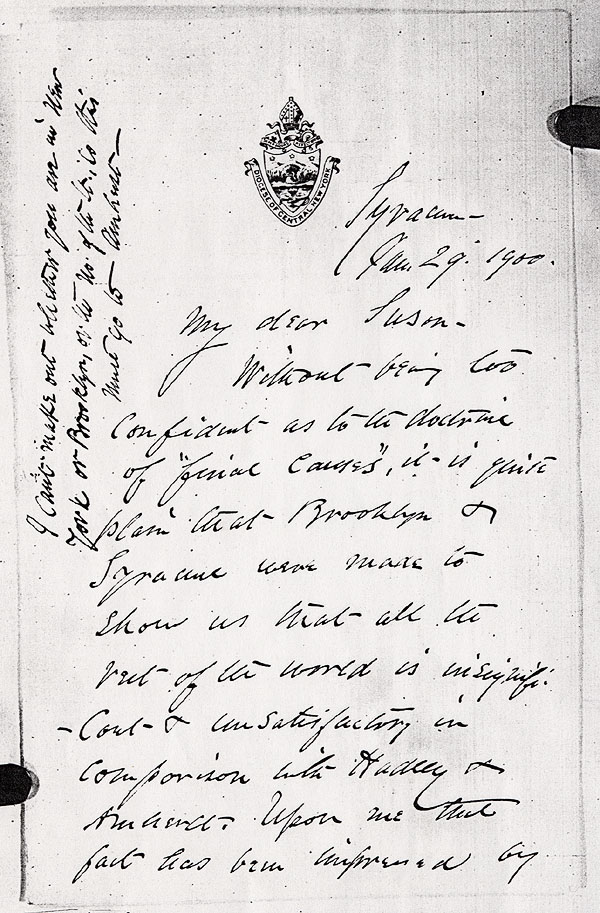 DIOCESE OF CENTRAL NEW YORK
Syracuse
Jan. 29. 1900.
My dear Susan -
Without being too
confident as to the doctrine
of "final causes", it is quite
plain that Brooklyn &
Syracuse were made to
show us that all the
rest of the world is insignifi-
-cant & unsatisfactory in
comparison with Hadley &
Amherst. Upon me that
fact has been impressed by
I can't make out whether you are in New
York or Brooklyn, or the No. of the St., so this
must go to Amherst -